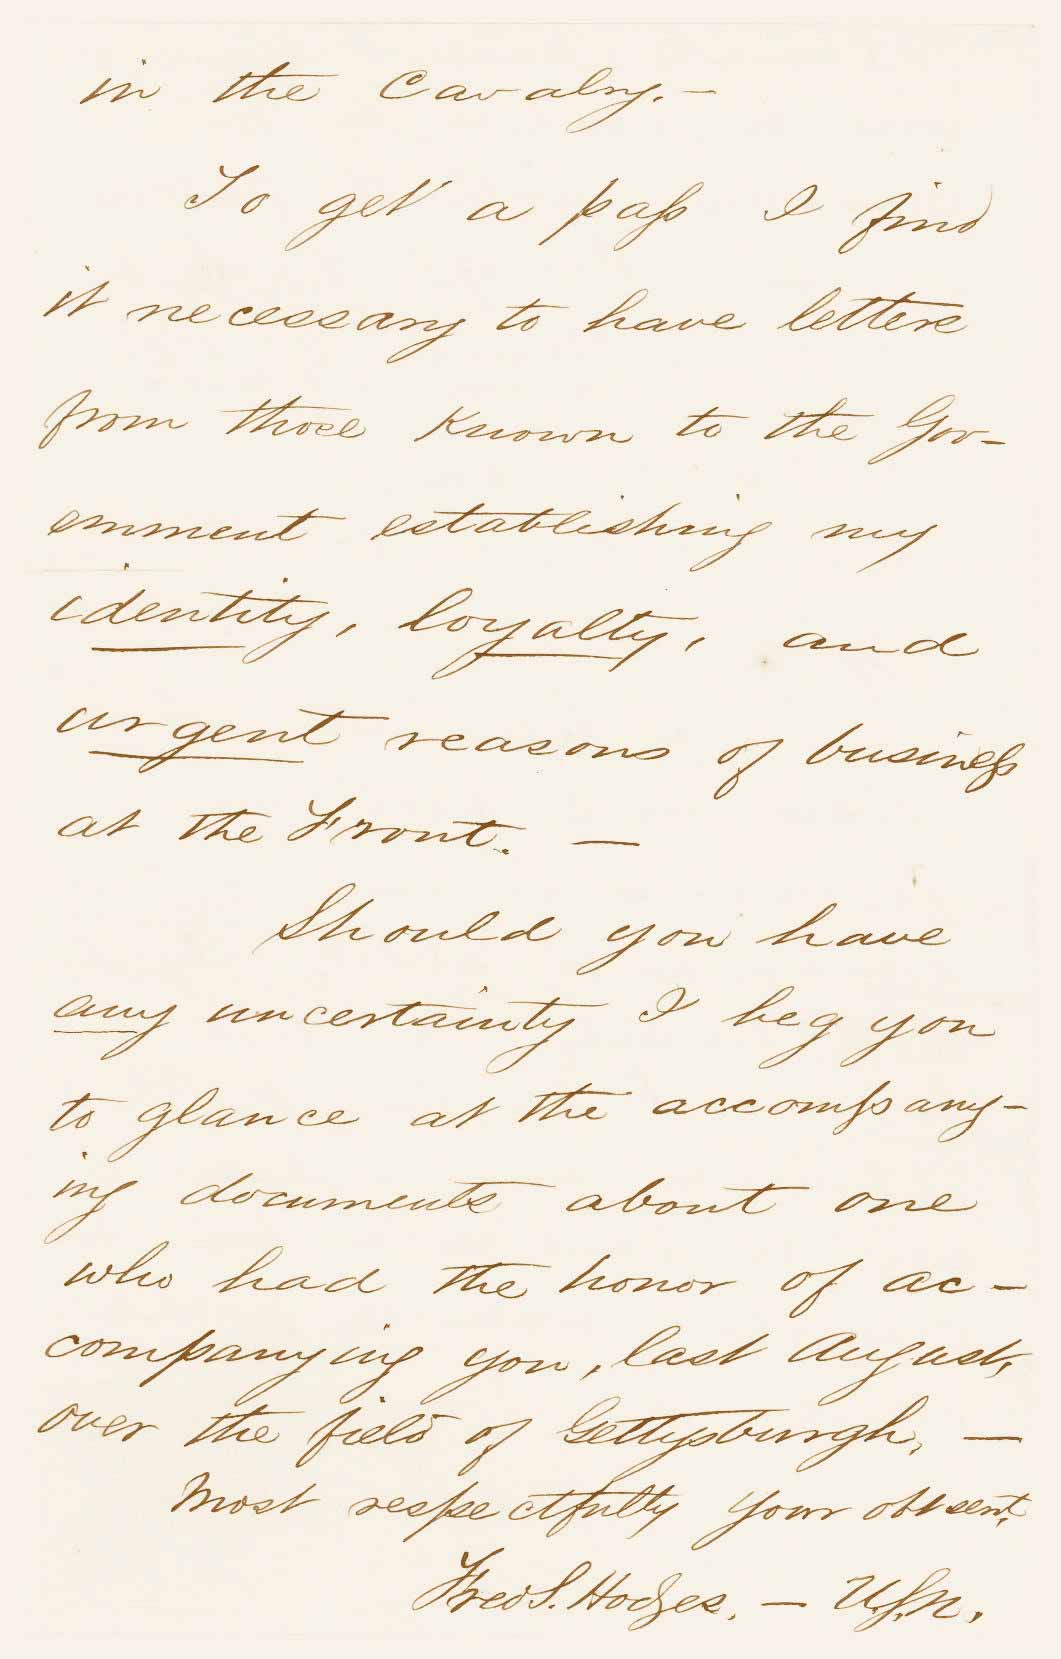 in the Cavalry. —
To get a pass I find
it necessary to have letters
from those known to the Gov-
ernment establishing my
identity, loyalty, and
urgent reasons of business
at the Front. —
Should you have
any uncertainty I beg you
to glance at the accompany-
ing documents about one
who had the honor of ac-
companying you, last August,
over the field of Gettysburgh, —
Most respectfully your obt sert,
Fred S. Hodges. — U.S.N.